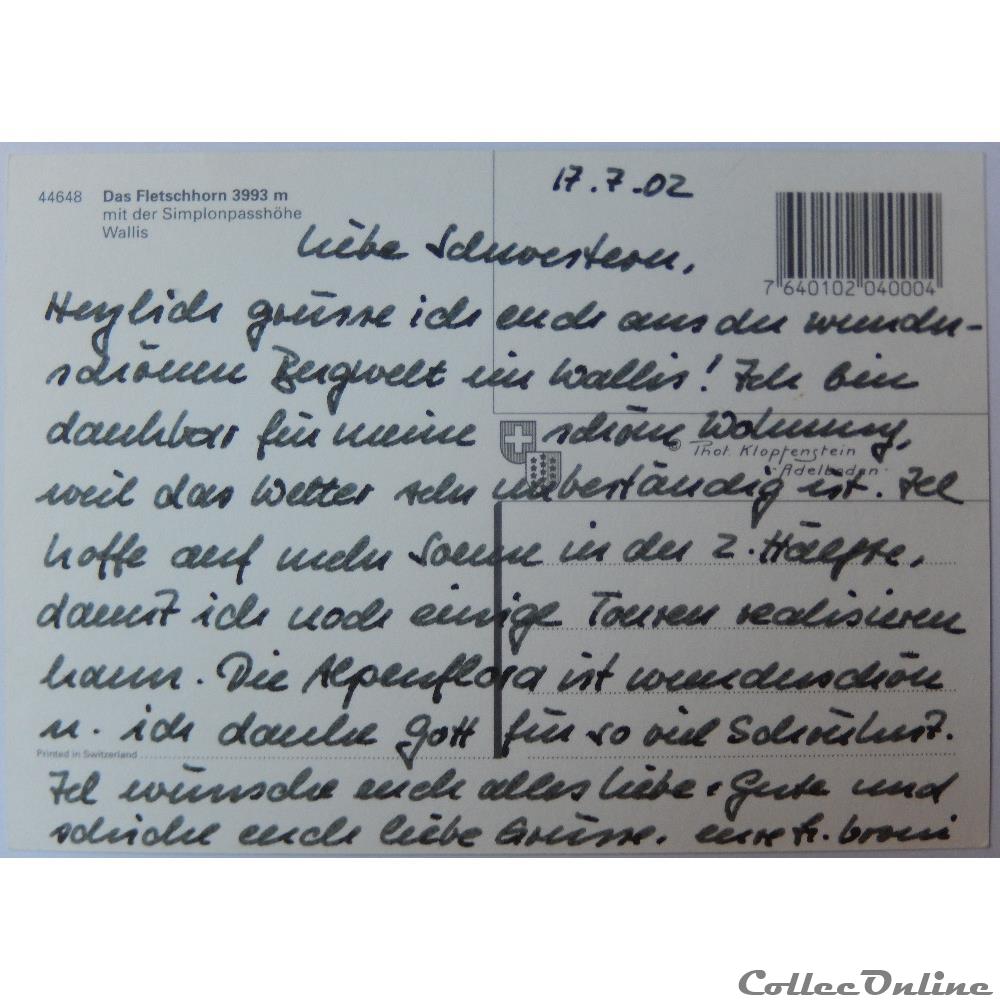 44648 Das Fletschhorn 3993 m
mit der Simplonpasshöhe
Wallis
17.7.02
7 640102 040004
Liebe Schwestern,
Herzlich grüsse ich euch aus der wunder-
schönen Bergwelt im Wallis! Ich bin
dankbar für meine schöne Wohnung,
weil das Wetter sehr unbeständig ist. Ich
hoffe auf mehr Sonne in der 2. Hälfte,
damit ich noch einige Touren realisieren
kann. Die Alpenflora ist wunderschön
u. ich danke Gott für so viel Schönheit.
Ich wünsche euch alles Liebe + Gute und
schicke euch liebe Grüsse. eure Sr.
© Phot. Klopfenstein
Adelboden
Printed in Switzerland
CollecOnline